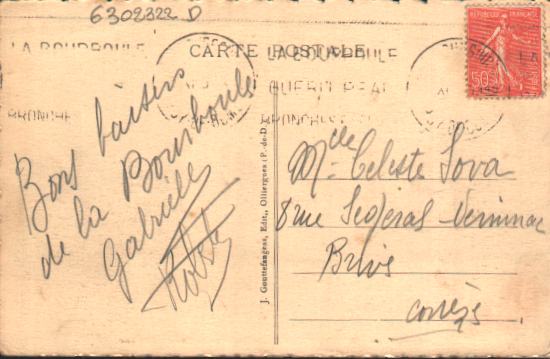 6302322 D
CARTE POSTALE
LA BOURBOULE
LA BOURBOULE
GUERIT PEAU
BRONCHES
BRONCHES
RÉPUBLIQUE FRANÇAISE
50c
Bons baisers
de la Bourboule
Gabrielle
J. Gouttefangeas, Edit., Olliergues (P.-de-D.)
Mlle Celeste Sova
8 rue
Brive
Corrèze